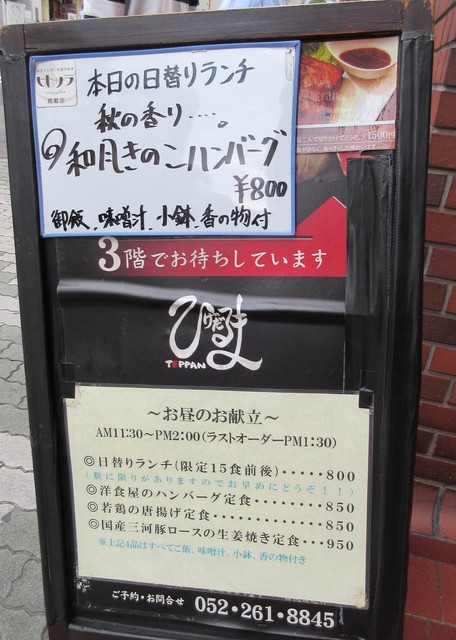 ヒトサラ
掲載店
本日の日替りランチ
秋の香り……。
和風きのこハンバーグ
¥800
御飯、味噌汁、小鉢、香の物付
1500円
3階でお待ちしています
ひげだるま
TEPPAN
～お昼のお献立～
AM11:30～PM2:00(ラストオーダーPM1:30)
◎日替りランチ(限定15食前後)・・・・・800
(数に限りがありますのでお早めにどうぞ！！)
◎洋食屋のハンバーグ定食・・・・・・・・850
◎若鶏の唐揚げ定食・・・・・・・・・・・・850
◎国産三河豚ロースの生姜焼き定食・・・950
※上記4品はすべてご飯、味噌汁、小鉢、香の物付き
ご予約・お問合せ 052・261・8845